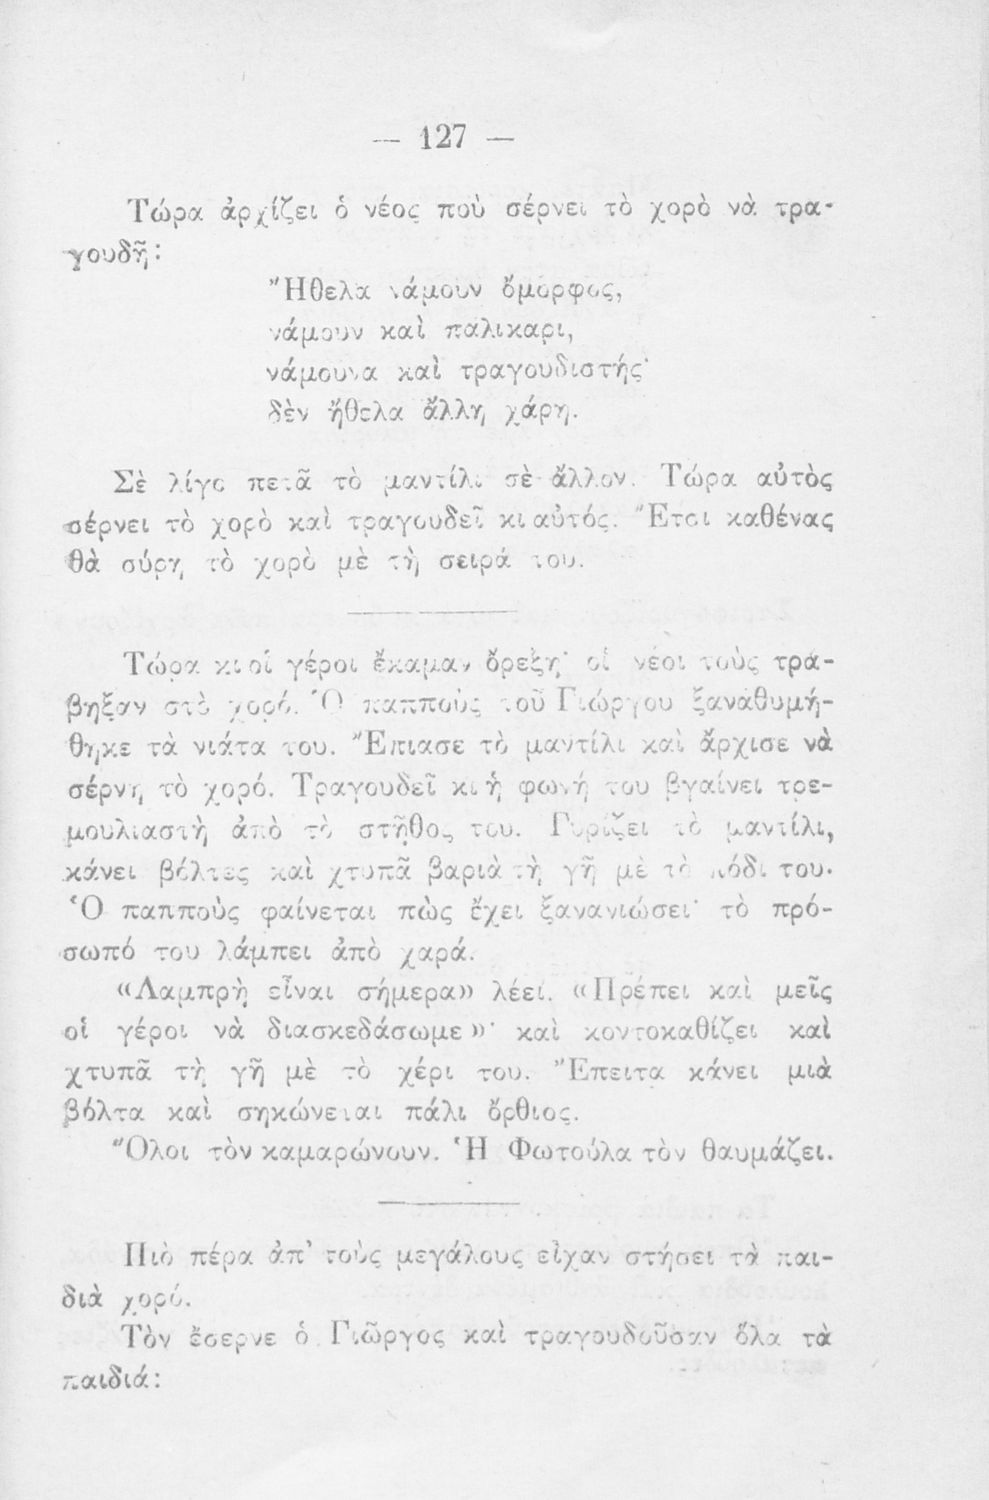 — 127 —
Τώρα ἀρχίζει ὁ νέος ποὺ σέρνει τὸ χορὸ νὰ τρα-
γουδῇ:
"Ηθελα νάμουν ὄμορφος,
νάμουν καὶ παλικαρι,
νάμουνα καὶ τραγουδιστής·
δὲν ἤθελα ἄλλη χάρη.
Σὲ λίγο πετᾶ τὸ μαντίλι σὲ ἄλλον. Τώρα αὐτὸς
σέρνει τὸ χορὸ καὶ τραγουδεῖ κι αὐτός. Ἔτσι καθένας
θὰ σύρῃ τὸ χορὸ μὲ τὴ σειρά του.
Τώρα κι οἱ γέροι ἔκαμαν ὄρεξη· οἱ νέοι τοὺς τρά-
βηξαν στὸ χορό. Ὁ παπποὺς τοῦ Γιώργου ξαναθυμή-
θηκε τὰ νιάτα του. Ἔπιασε τὸ μαντίλι καὶ ἄρχισε νὰ
σέρνῃ τὸ χορό. Τραγουδεῖ κι ἡ φωνή του βγαίνει τρε-
μουλιαστὴ ἀπὸ τὸ στῆθος του. Γυρίζει τὸ μαντίλι,
κάνει βόλτες καὶ χτυπᾶ βαριὰ τὴ γῆ μὲ τὸ πόδι του.
Ὁ παπποὺς φαίνεται πὼς ἔχει ξανανιώσει· τὸ πρό-
σωπό του λάμπει ἀπὸ χαρά.
«Λαμπρὴ εἶναι σήμερα» λέει. «Πρέπει καὶ μεῖς
οἱ γέροι νὰ διασκεδάσωμε»· καὶ κοντοκαθίζει καὶ
χτυπᾶ τὴ γῆ μὲ τὸ χέρι του. Ἔπειτα κάνει μιὰ
βόλτα καὶ σηκώνεται πάλι ὄρθιος.
Ὅλοι τὸν καμαρώνουν. Ἡ Φωτούλα τὸν θαυμάζει.
Πιὸ πέρα ἀπ' τοὺς μεγάλους εἶχαν στήσει τὰ παι-
διὰ χορό.
Τὸν ἔσερνε ὁ Γιῶργος καὶ τραγουδοῦσαν ὅλα τὰ
παιδιά: